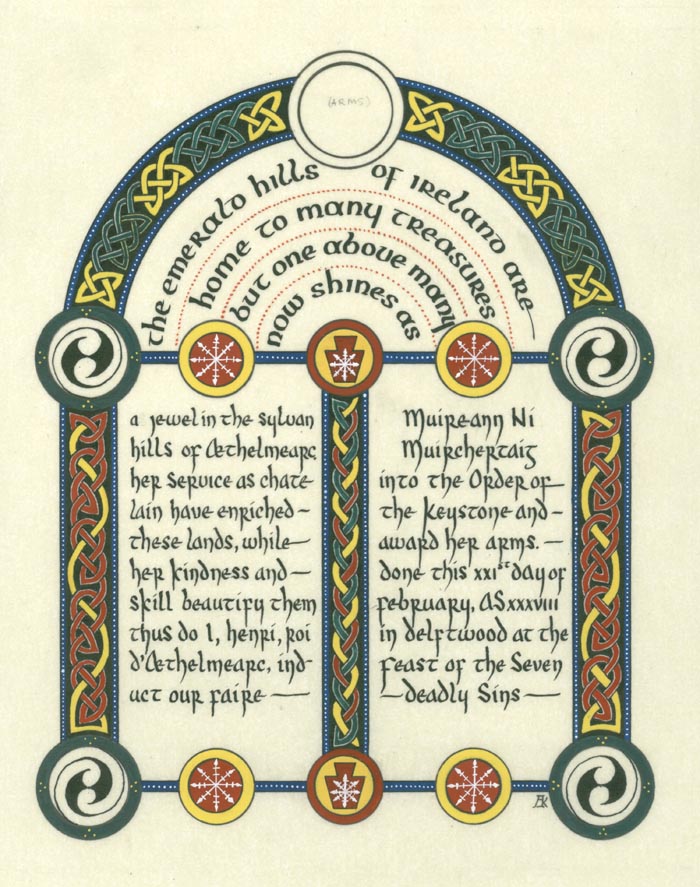 (ARMS)
the emerald hills of Ireland are
home to many treasures
but one above many
now shines as
a jewel in the Sylvan
hills of Æthelmearc
her Service as chate
lain have enriched
these lands, while
her kindness and
skill beautify them
thus do I, henri, roi
d'Æthelmearc, ind-
uct our faire
Muireann Ni
Muirchertaig
into the Order of
the Keystone and
award her arms.
done this xxist day of
february, AS xxxviii
in delftwood at the
feast of the Seven
deadly Sins
AK